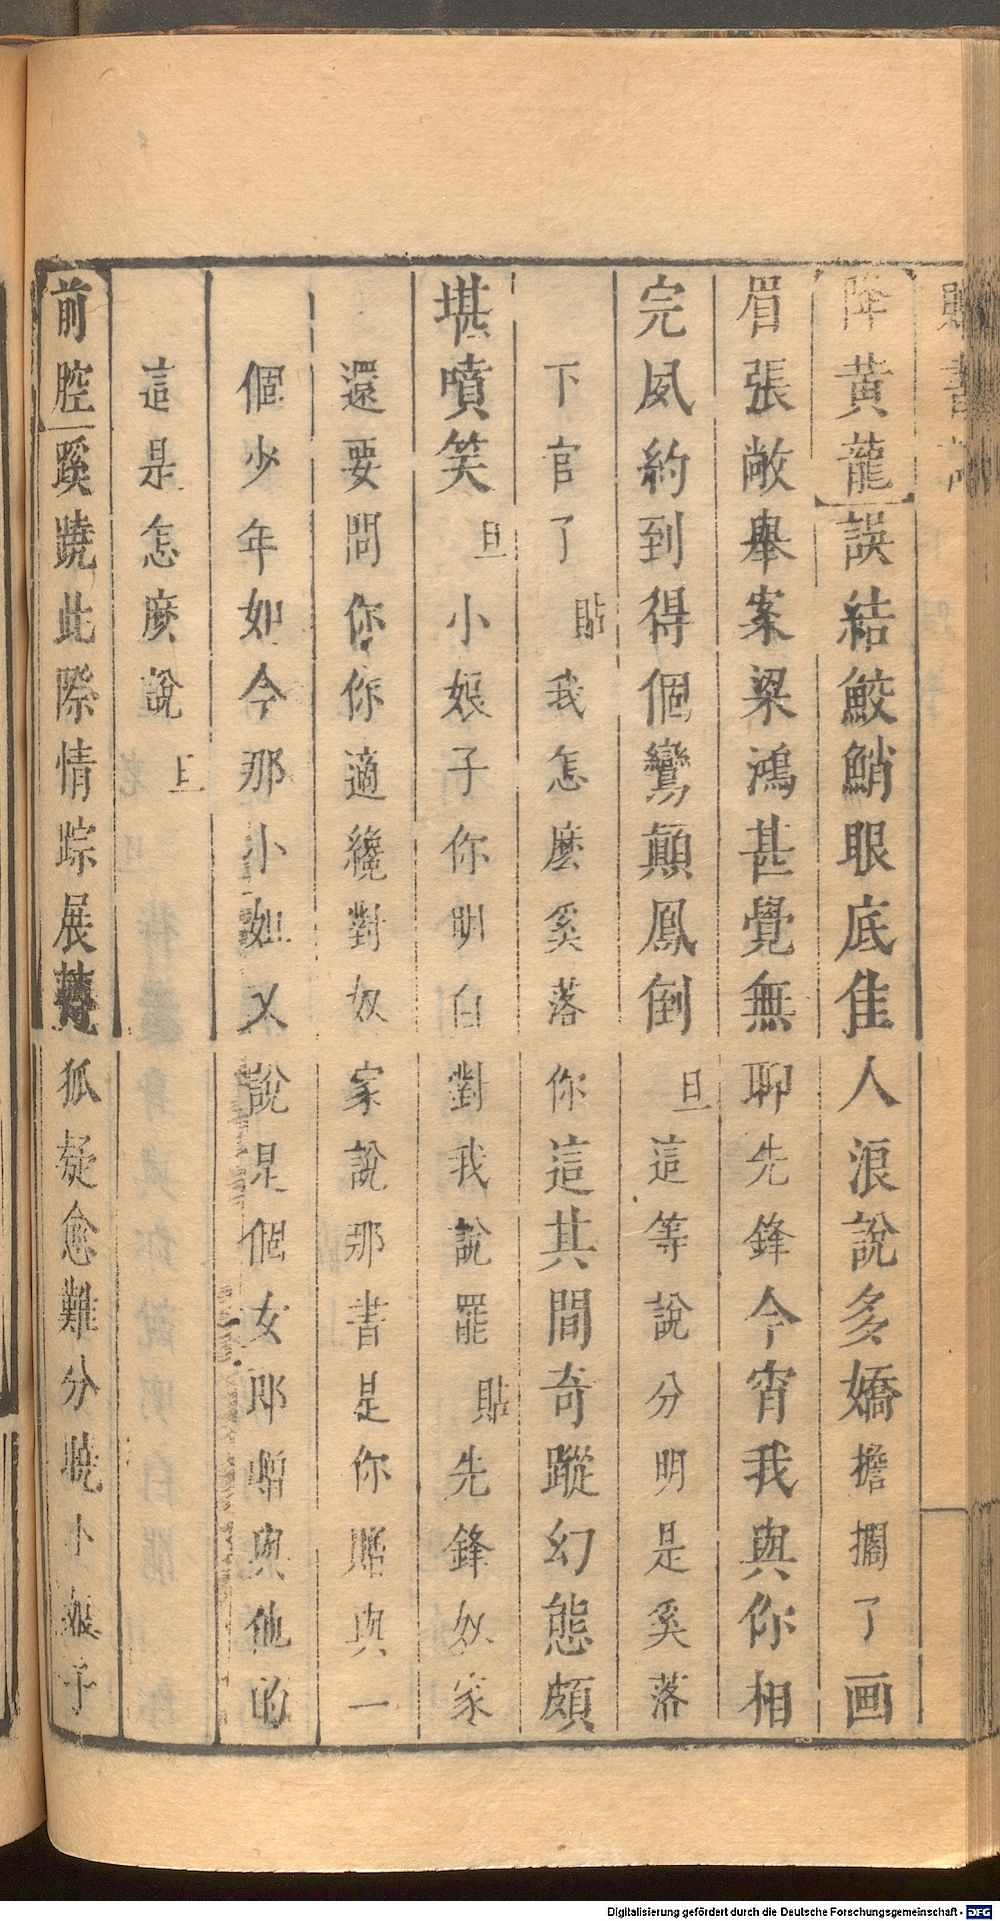 降黃龍 誤結鮫鮹眼底佳人浪說多嬌擔擱了画
眉張敞舉案梁鴻甚覺無聊先鋒今宵我與你相
完夙約到得個鸞顛鳳倒旦這等說分明是奚落
下官了貼我怎麽奚落你這其間奇蹤幻態頗
堪噴笑旦小娘子你明白對我說罷貼先鋒奴家
還要問你你適纔對奴家說那書是你贈與一
個少年如今那小姐又說是個女郎贈與他的
這是怎麽說旦
前腔 蹊蹺此際情踪展轉狐疑愈難分曉小娘子
Digitalisierung gefördert durch die Deutsche Forschungsgemeinschaft - DFG